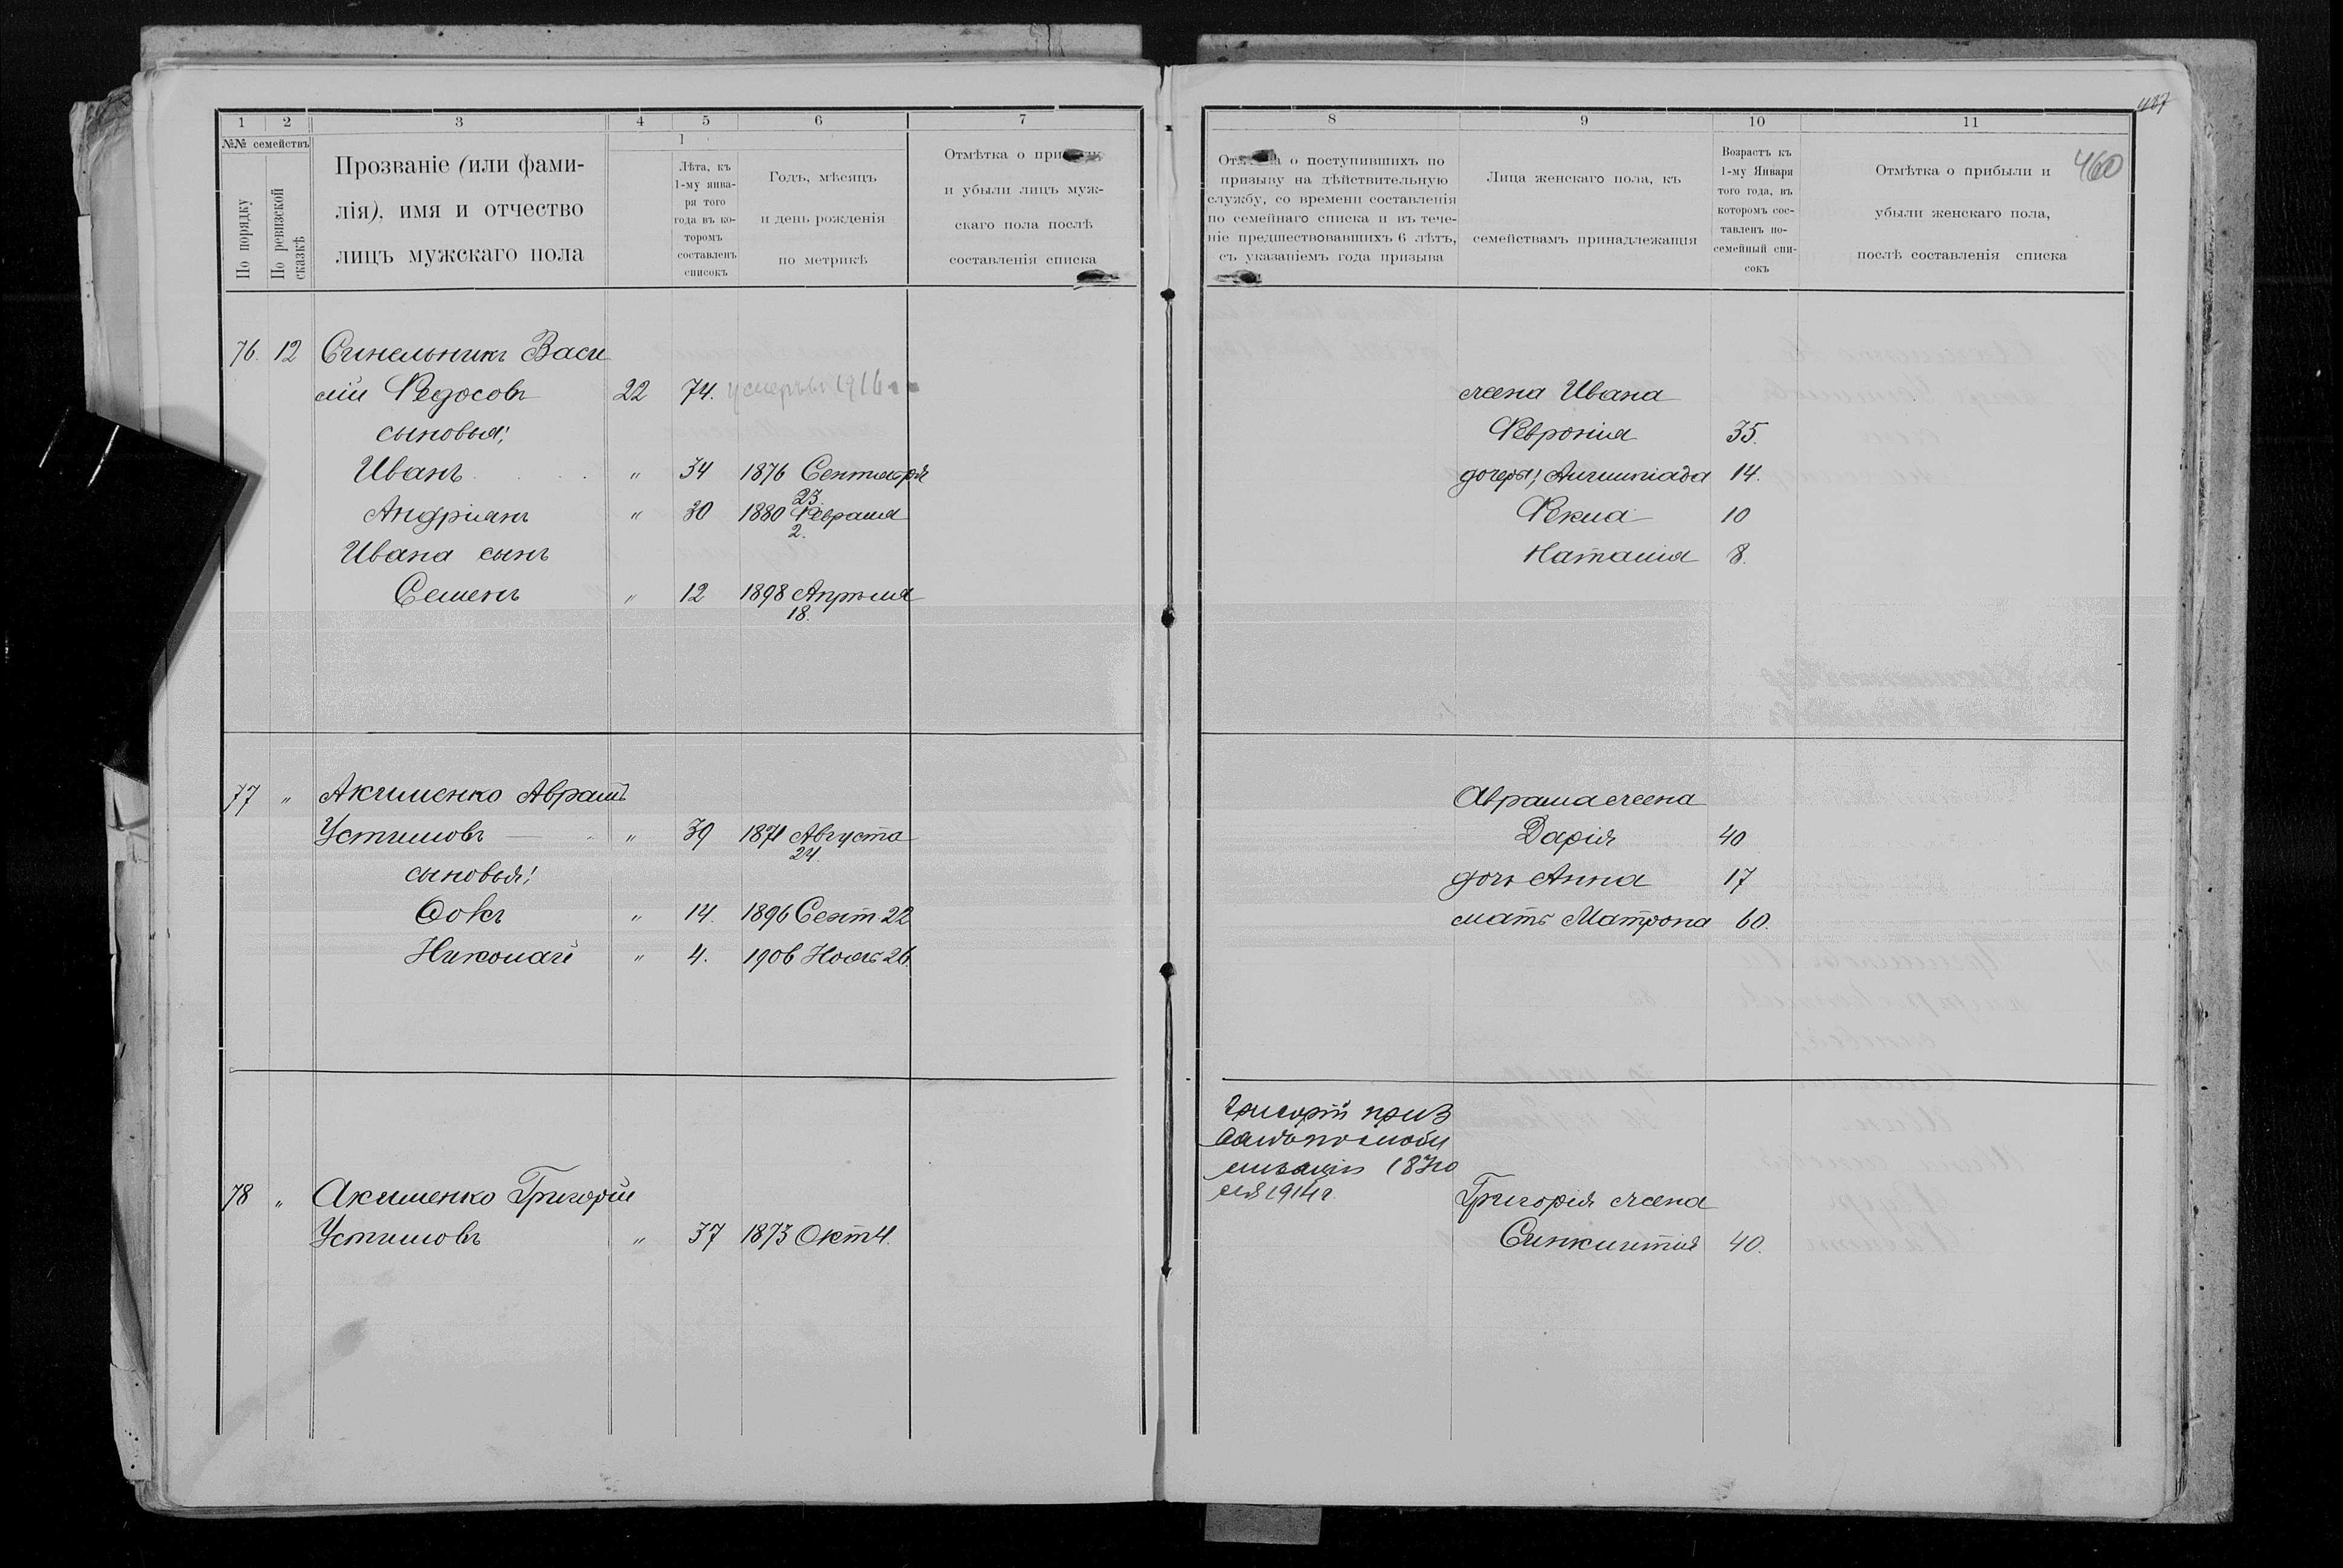 1 2 3 4 5 6 7
№№ семействъ
По порядку
По ревизской сказкѣ
Прозваніе (или фами-
лія), имя и отчество
лицъ мужскаго пола
1
Лѣта, къ
1-му янва-
ря того
года въ ко-
торомъ
составленъ
списокъ
Годъ, мѣсяцъ
и день рожденія
по метрикѣ
Отмѣтка о
и убыли лицъ муж-
скаго пола послѣ
составленія списка
76. 12 Синельникъ Васи
лій Ѳедосовъ 22 74. умеръ 1916
сыновья;
Иванъ " 34 1876 Сентября
23.
Андріянъ " 30 1880 Февраля
2.
Ивана сынъ
Семенъ " 12 1898 Апрѣля
18.
77 " Акименко Аврамъ
Устимовъ " 39 1871 Августа
24.
сыновья!
Фокъ " 14. 1896 Сент 22
Николай " 4. 1906 Нояб 26.
78 " Акименко Григорій
Устимовъ " 37 1873 Окт 4.
8 9 10 11
437
460
о поступившихъ по
призыву на дѣйствительную
службу, со времени составленія
по семейнаго списка и въ тече-
ніе предшествовавшихъ 6 лѣтъ,
съ указаніемъ года призыва
Лица женскаго пола, къ
семействамъ принадлежащія
Возрастъ къ
1-му Января
того года, въ
которомъ сос-
тавленъ по-
семейный спи-
сокъ
Отмѣтка о прибыли и
убыли женскаго пола,
послѣ составленія списка
жена Ивана
Февронія 35.
дочеры; 14.
Ѳекла 10
Наталія 8.
Аврама жена
Дарія 40
дочь Анна 17
мать Матрона 60.
Григорій приз
по моби
лизаціи 18 Ію
ля 1914 г.
Григорія жена
Синклитія 40.